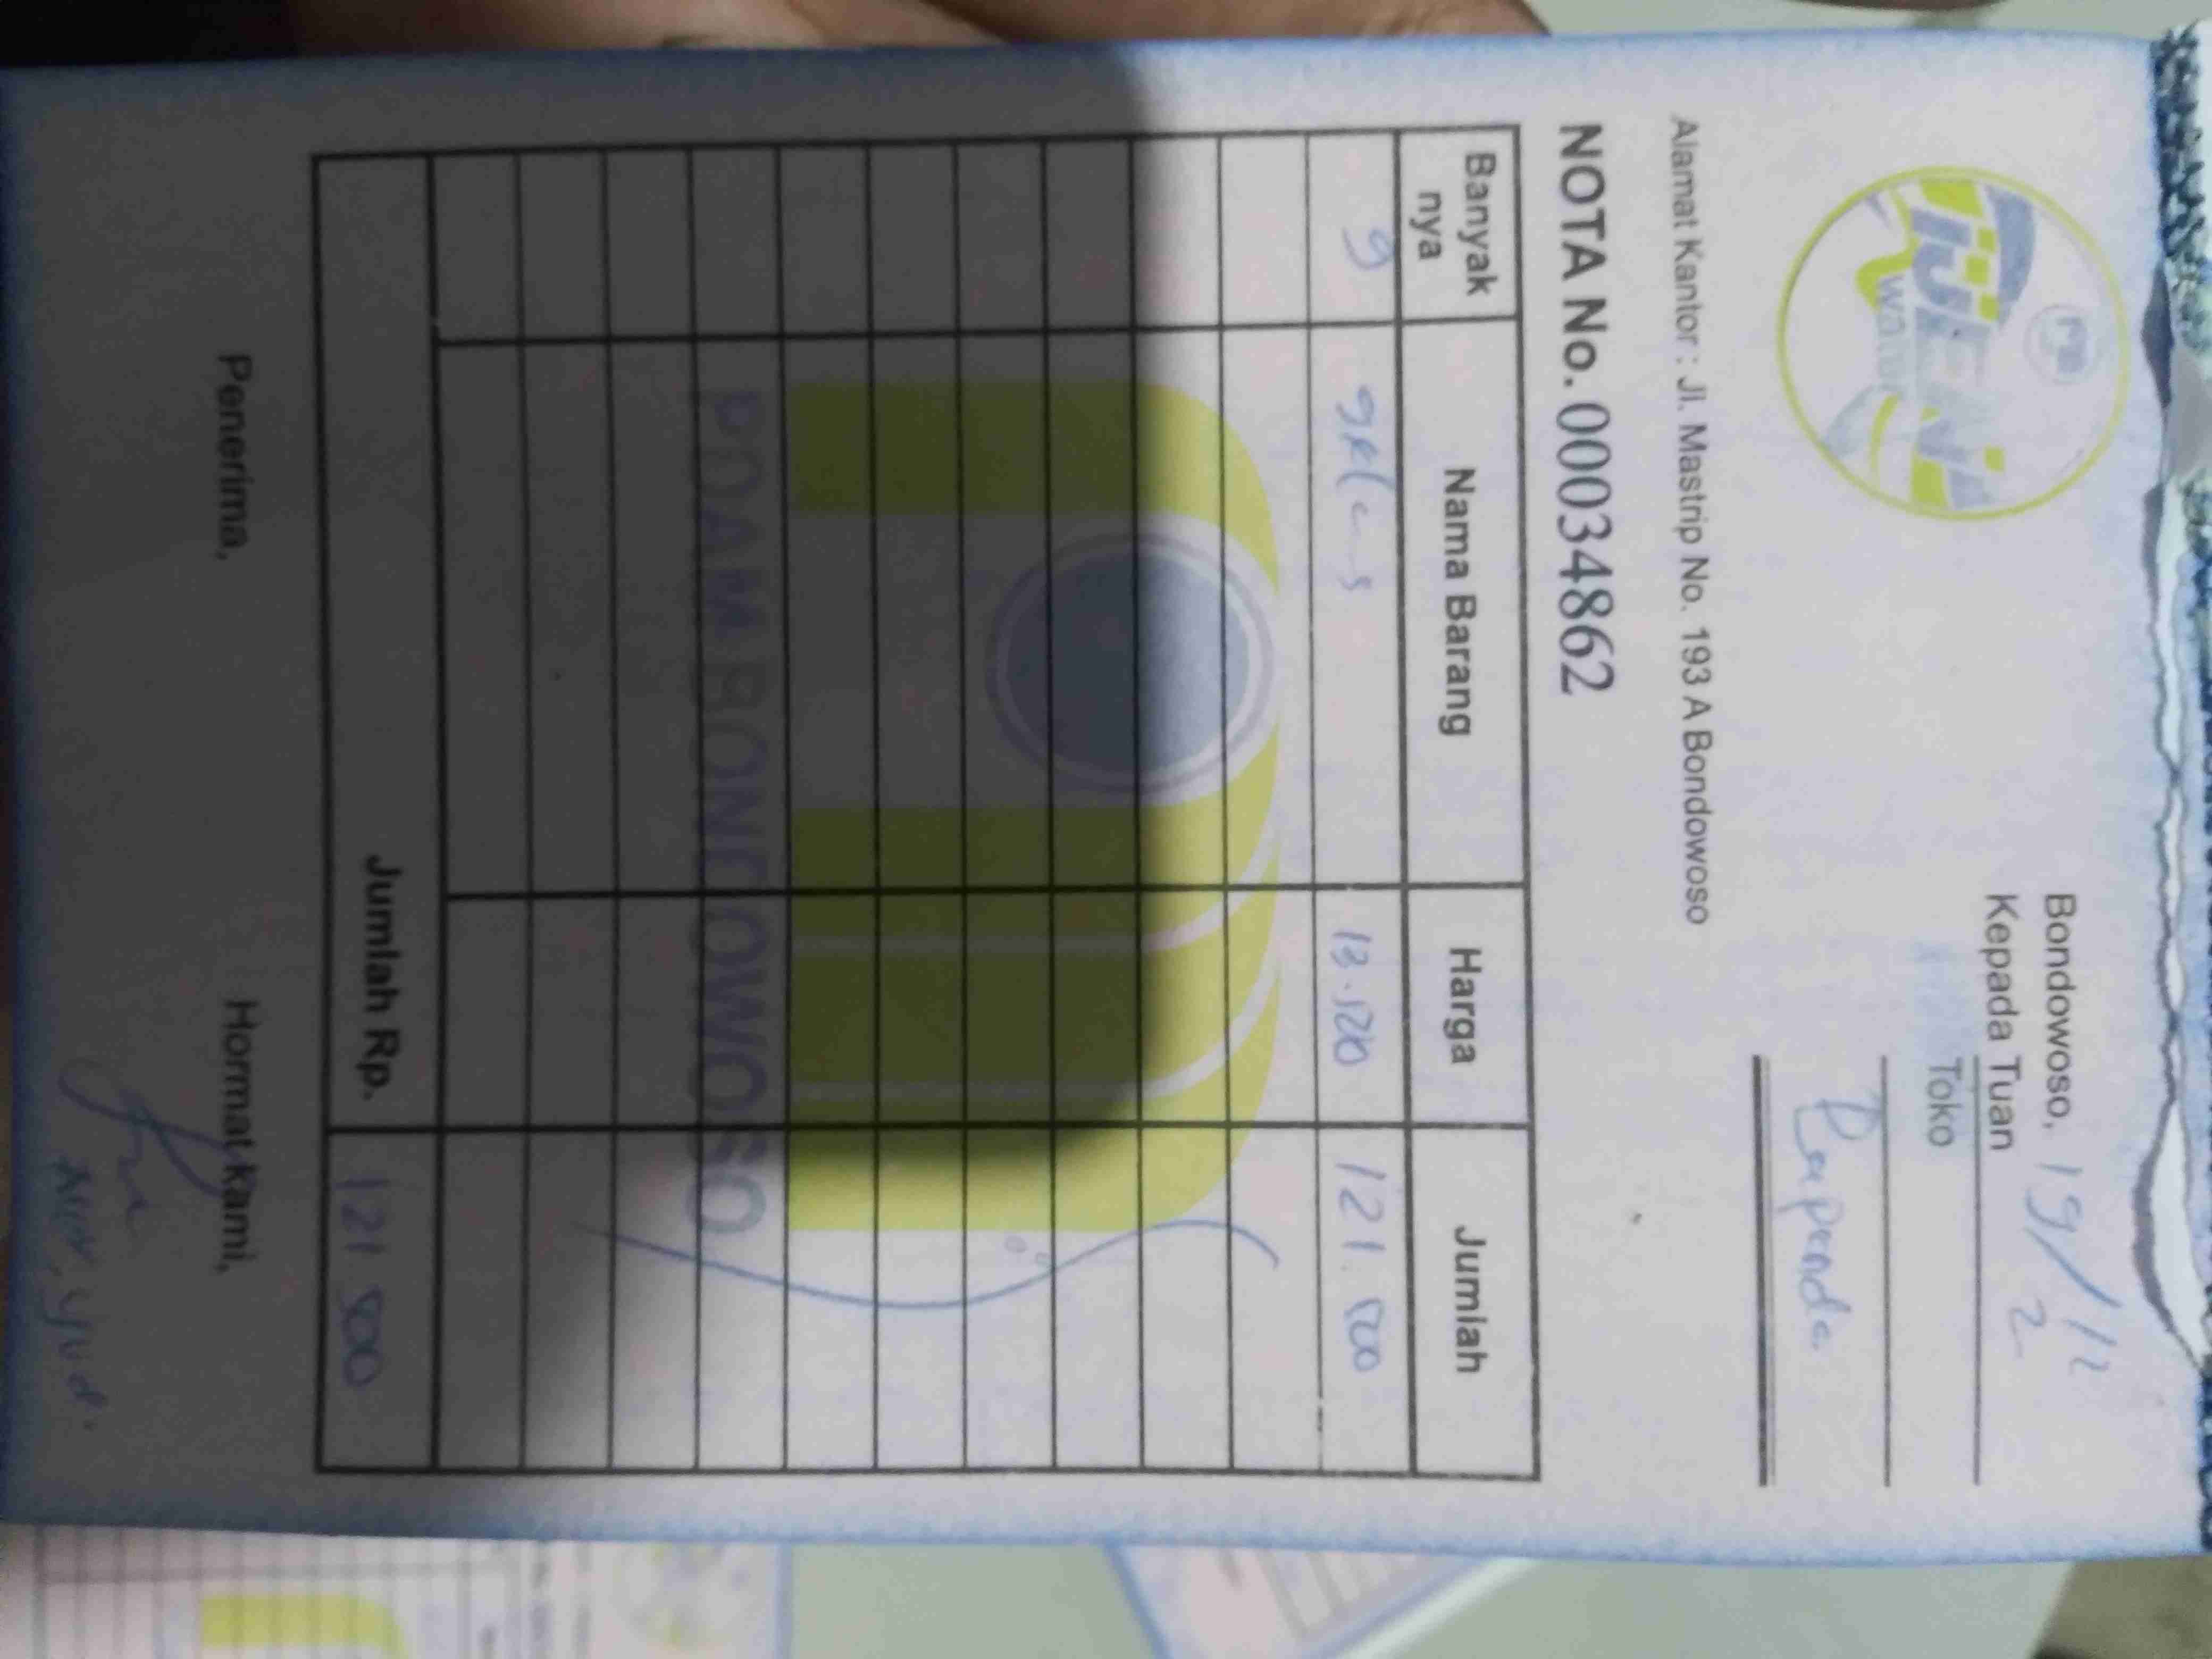 IJEN
water
Bondowoso, 19/12
2
Kepada Tuan
Toko
Bapenda
Alamat Kantor : Jl. Mastrip No. 193 A Bondowoso
NOTA No. 00034862
Banyak nya Nama Barang Harga Jumlah
9 gelas 13.500 121.500
PDAM BONDOWOSO
Jumlah Rp. 121 500
Penerima, Hormat kami,